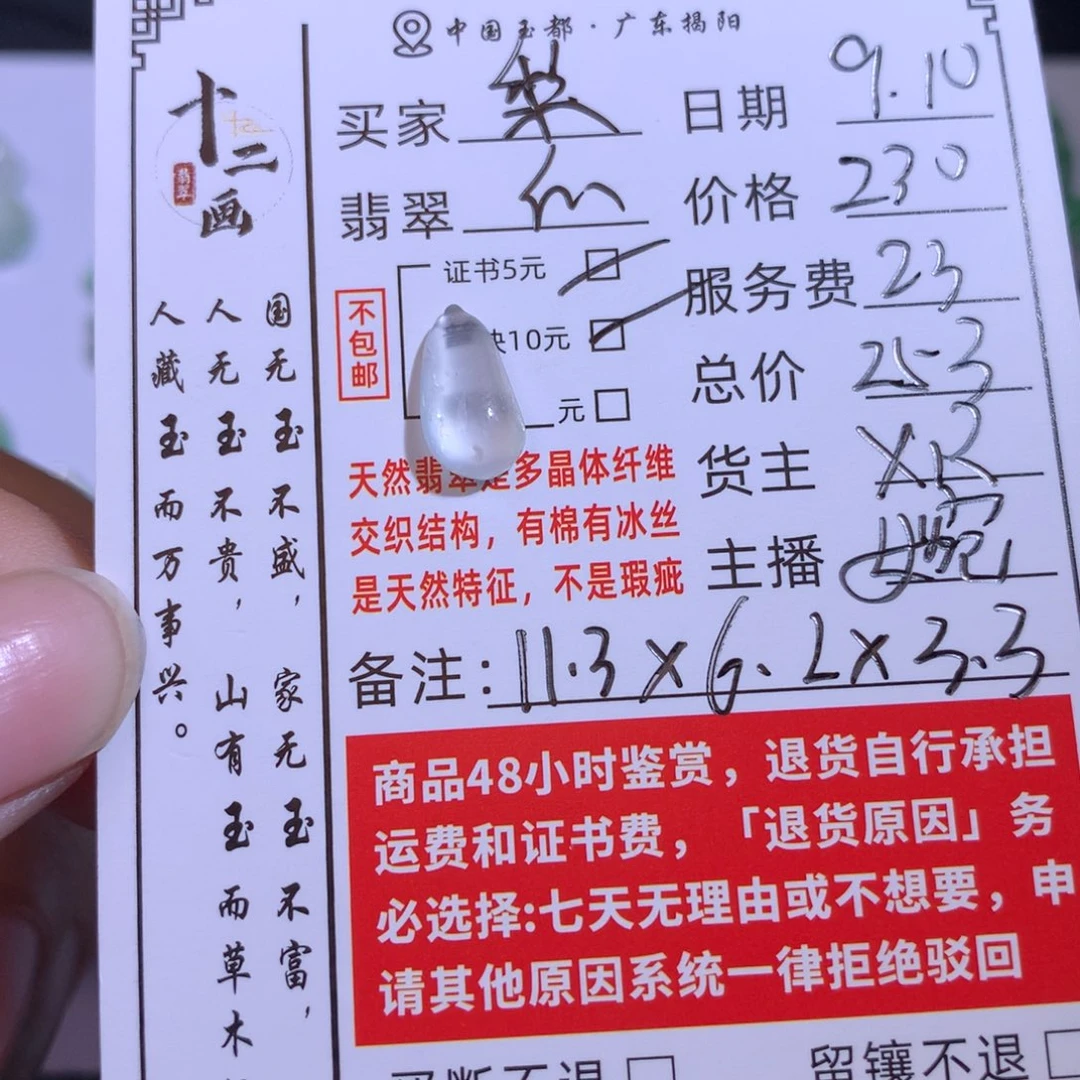 中国玉都·广东揭阳
十二画
翡翠
国无玉不盛，家无玉不富，
人无玉不贵，山有玉而草木
人藏玉而万事兴。
买家
日期 9.10
翡翠
价格 230
不包邮
证书5元
服务费 23
10元
总价 253
元
货主
天然翡翠是多晶体纤维
交织结构，有棉有冰丝
是天然特征，不是瑕疵
主播 婉
备注：11.3×6.2×3.3
商品48小时鉴赏，退货自行承担
运费和证书费，「退货原因」务
必选择:七天无理由或不想要，申
请其他原因系统一律拒绝驳回
买断不退
留镶不退